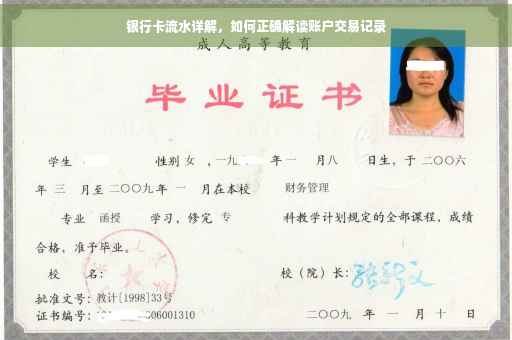 银行卡流水详解，如何正确解读账户交易记录
成人高等教育
毕业证书
学生 性别 女 ，一九 年一 月八 日生，于二〇〇六
年 三 月至二〇〇九年 一 月在本校 财务管理
专业 函授 学习，修完 专 科教学计划规定的全部课程，成绩
合格，准予毕业。
校 名： 校（院）长：
批准文号：教计[1998]33号
证书编号：1 606001310 二〇〇九 年 一 月 十 日